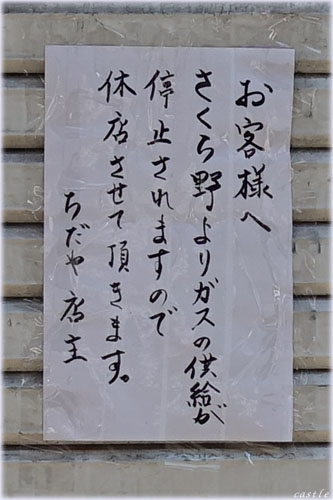 お客様へ
さくら野よりガスの供給が
停止されますので
休店させて頂きます。
ちだや 店主
castle